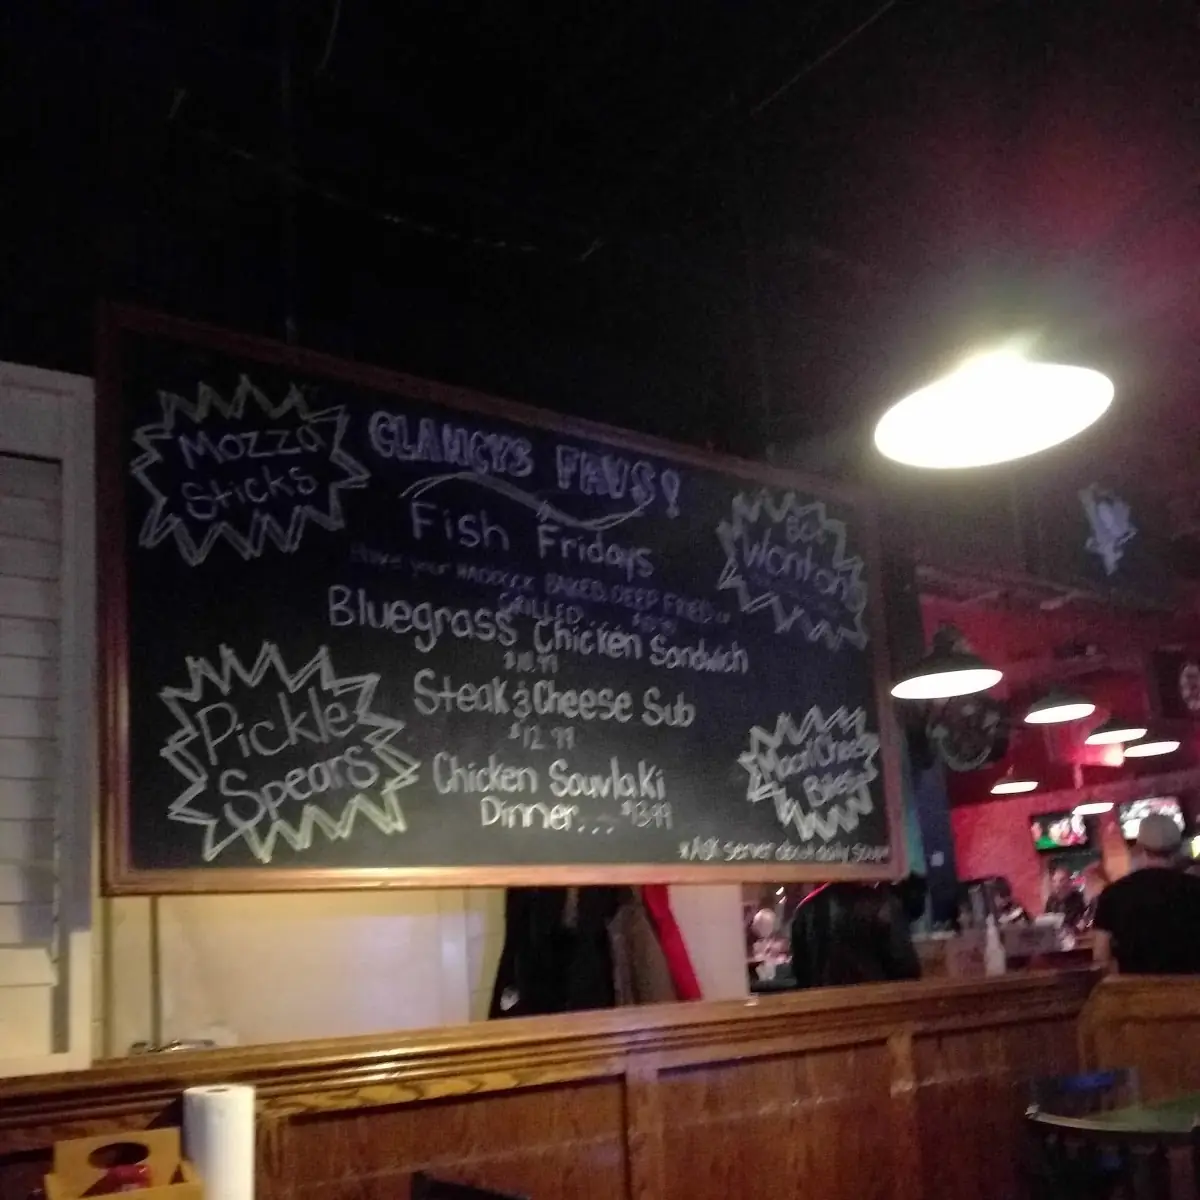 Mozza
Sticks
CLANCYS FAVS!
Fish Fridays
Have your HADDOCK BAKED, DEEP FRIED or
GRILLED....
Bluegrass Chicken Sandwich
$10.99
Steak & Cheese Sub
$12.99
Chicken Souvlaki
Dinner... $13.99
Pickle
Spears
Wonton
Mac n Cheese
Bites
*Ask server about daily soup